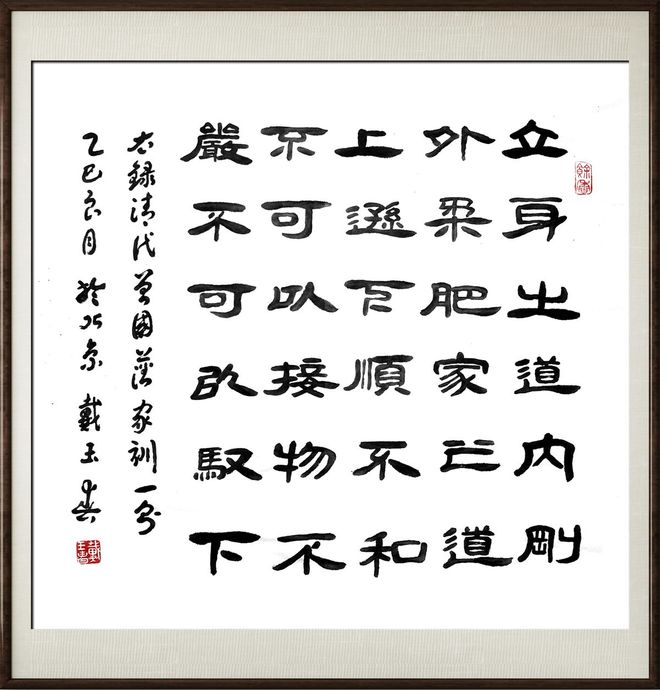 立身之道内剛
外柔肥家之道
上遜下順不和
不可以接物不
嚴不可以馭下
右録清代曾國藩家訓一則
乙巳良月於北京 戴玉